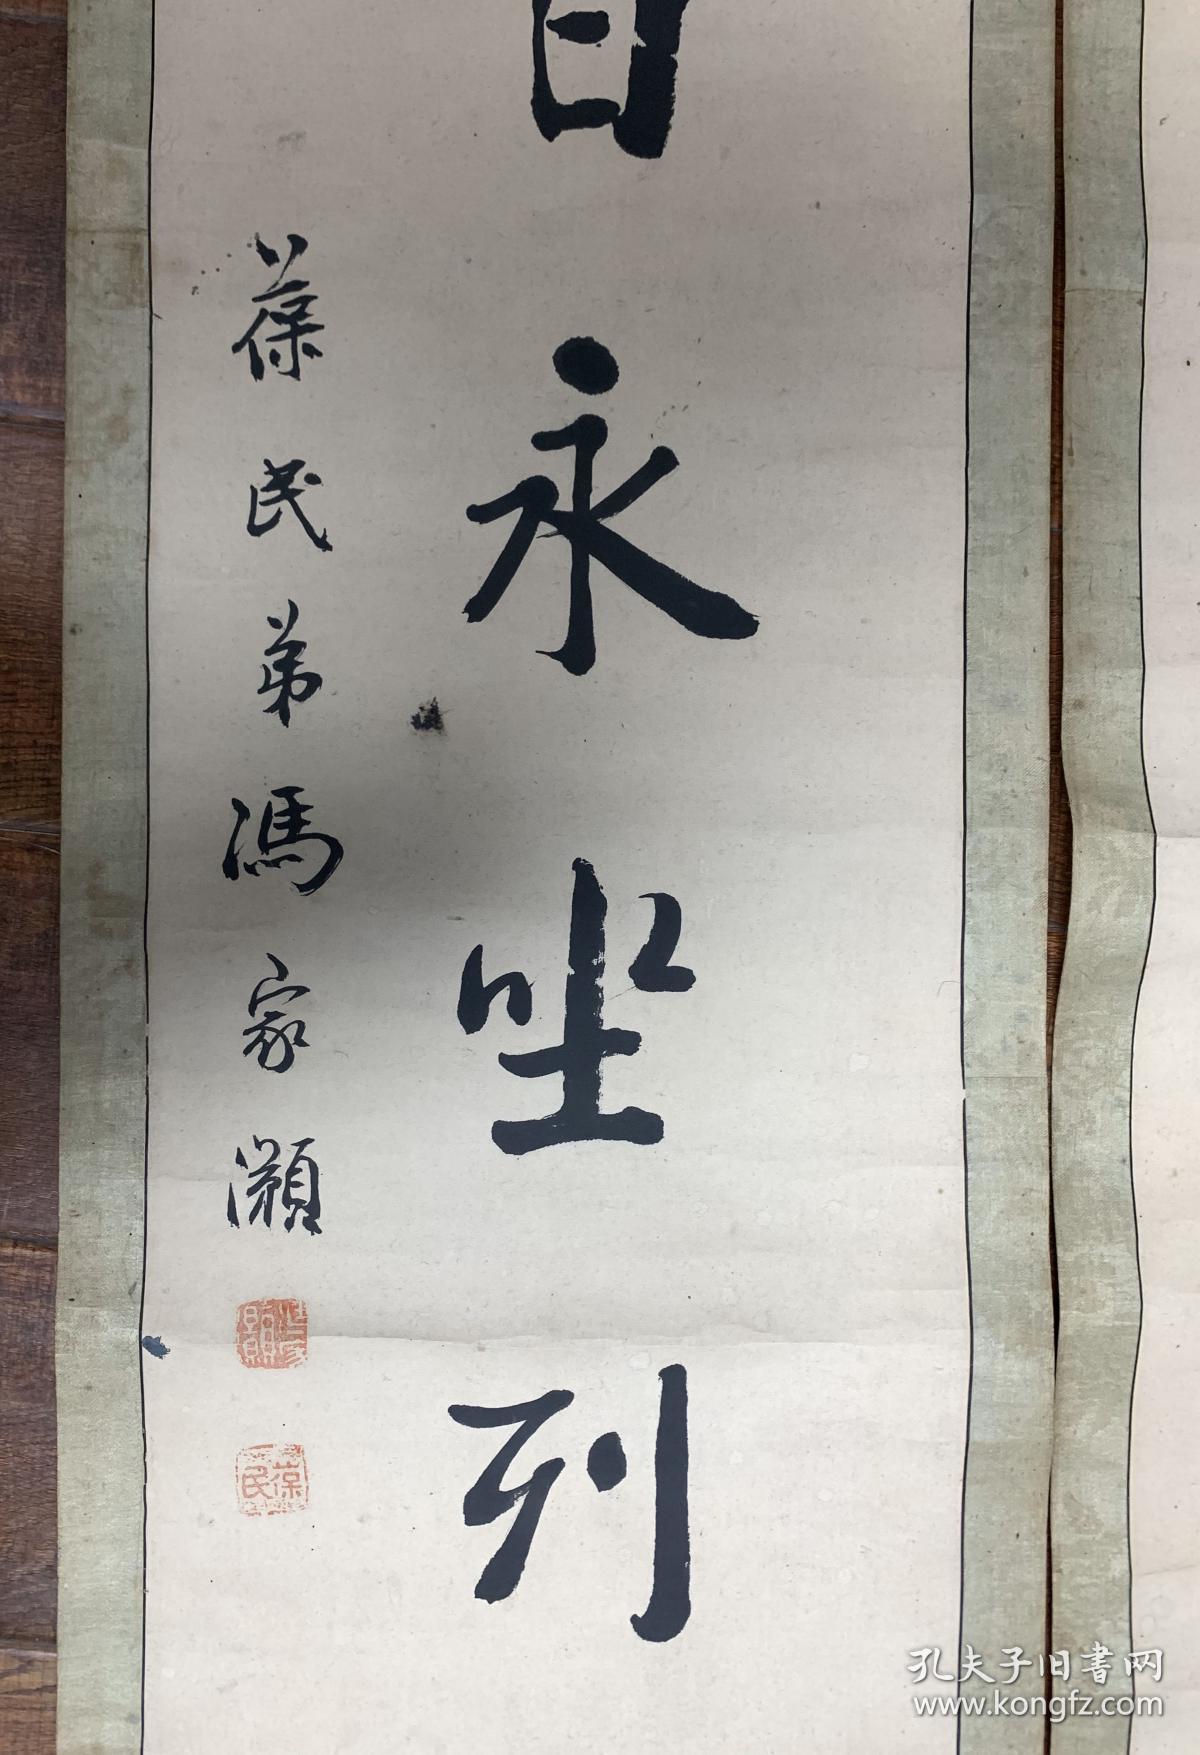 永坐列
葆民弟馮家灝
葆民
孔夫子旧書网
www.kongfz.com